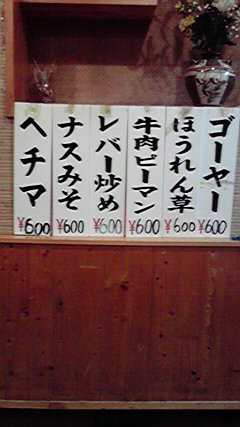 ゴーヤー
¥600
ほうれん草
¥600
牛肉ピーマン
¥600
レバー炒め
¥600
ナスみそ
¥600
ヘチマ
¥600